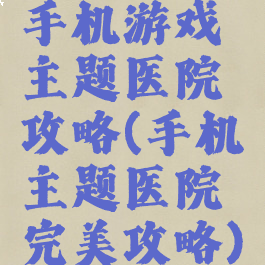 手机游戏
主题医院
攻略(手机
主题医院
完美攻略)